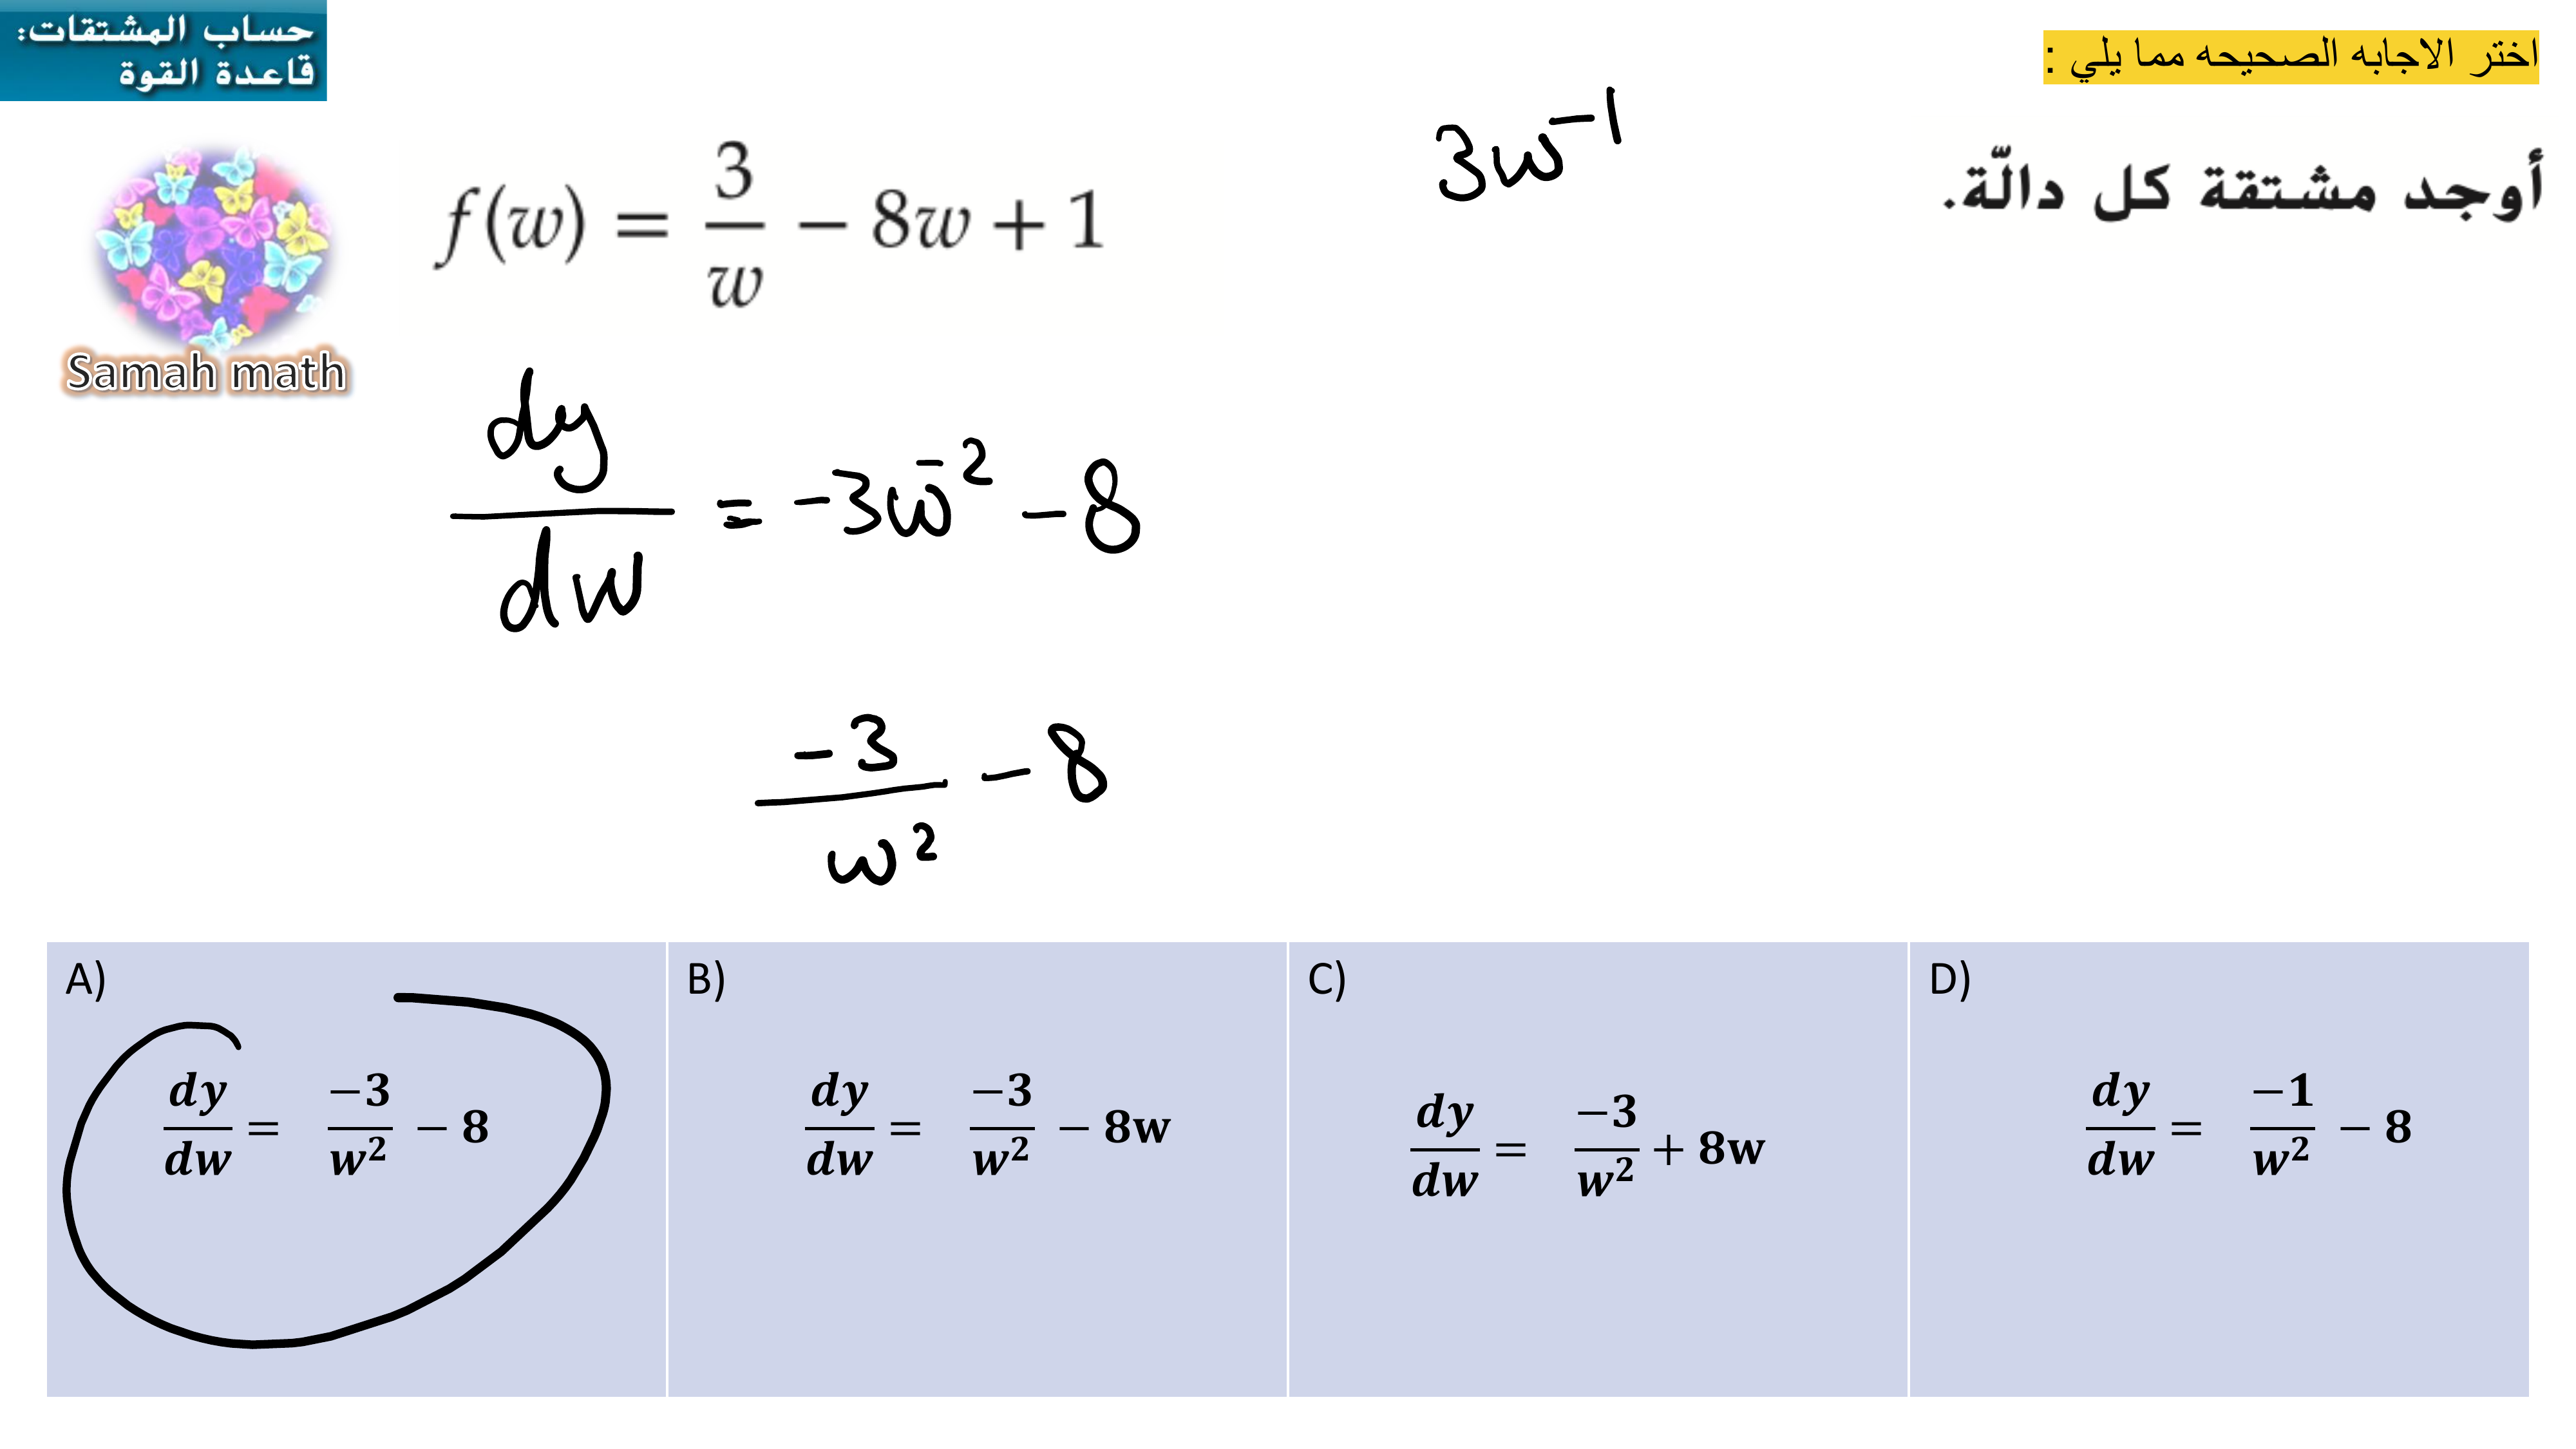 حساب المشتقات:
قاعدة القوة
اختر الاجابه الصحيحه مما يلي :
أوجد مشتقة كل دالّة.
Samah math
f(w) = 3/w − 8w + 1
3w⁻¹
dy/dw = -3w⁻² - 8
-3/w² - 8
A)
dy/dw = −3/w² − 8
B)
dy/dw = −3/w² − 8w
C)
dy/dw = −3/w² + 8w
D)
dy/dw = −1/w² − 8